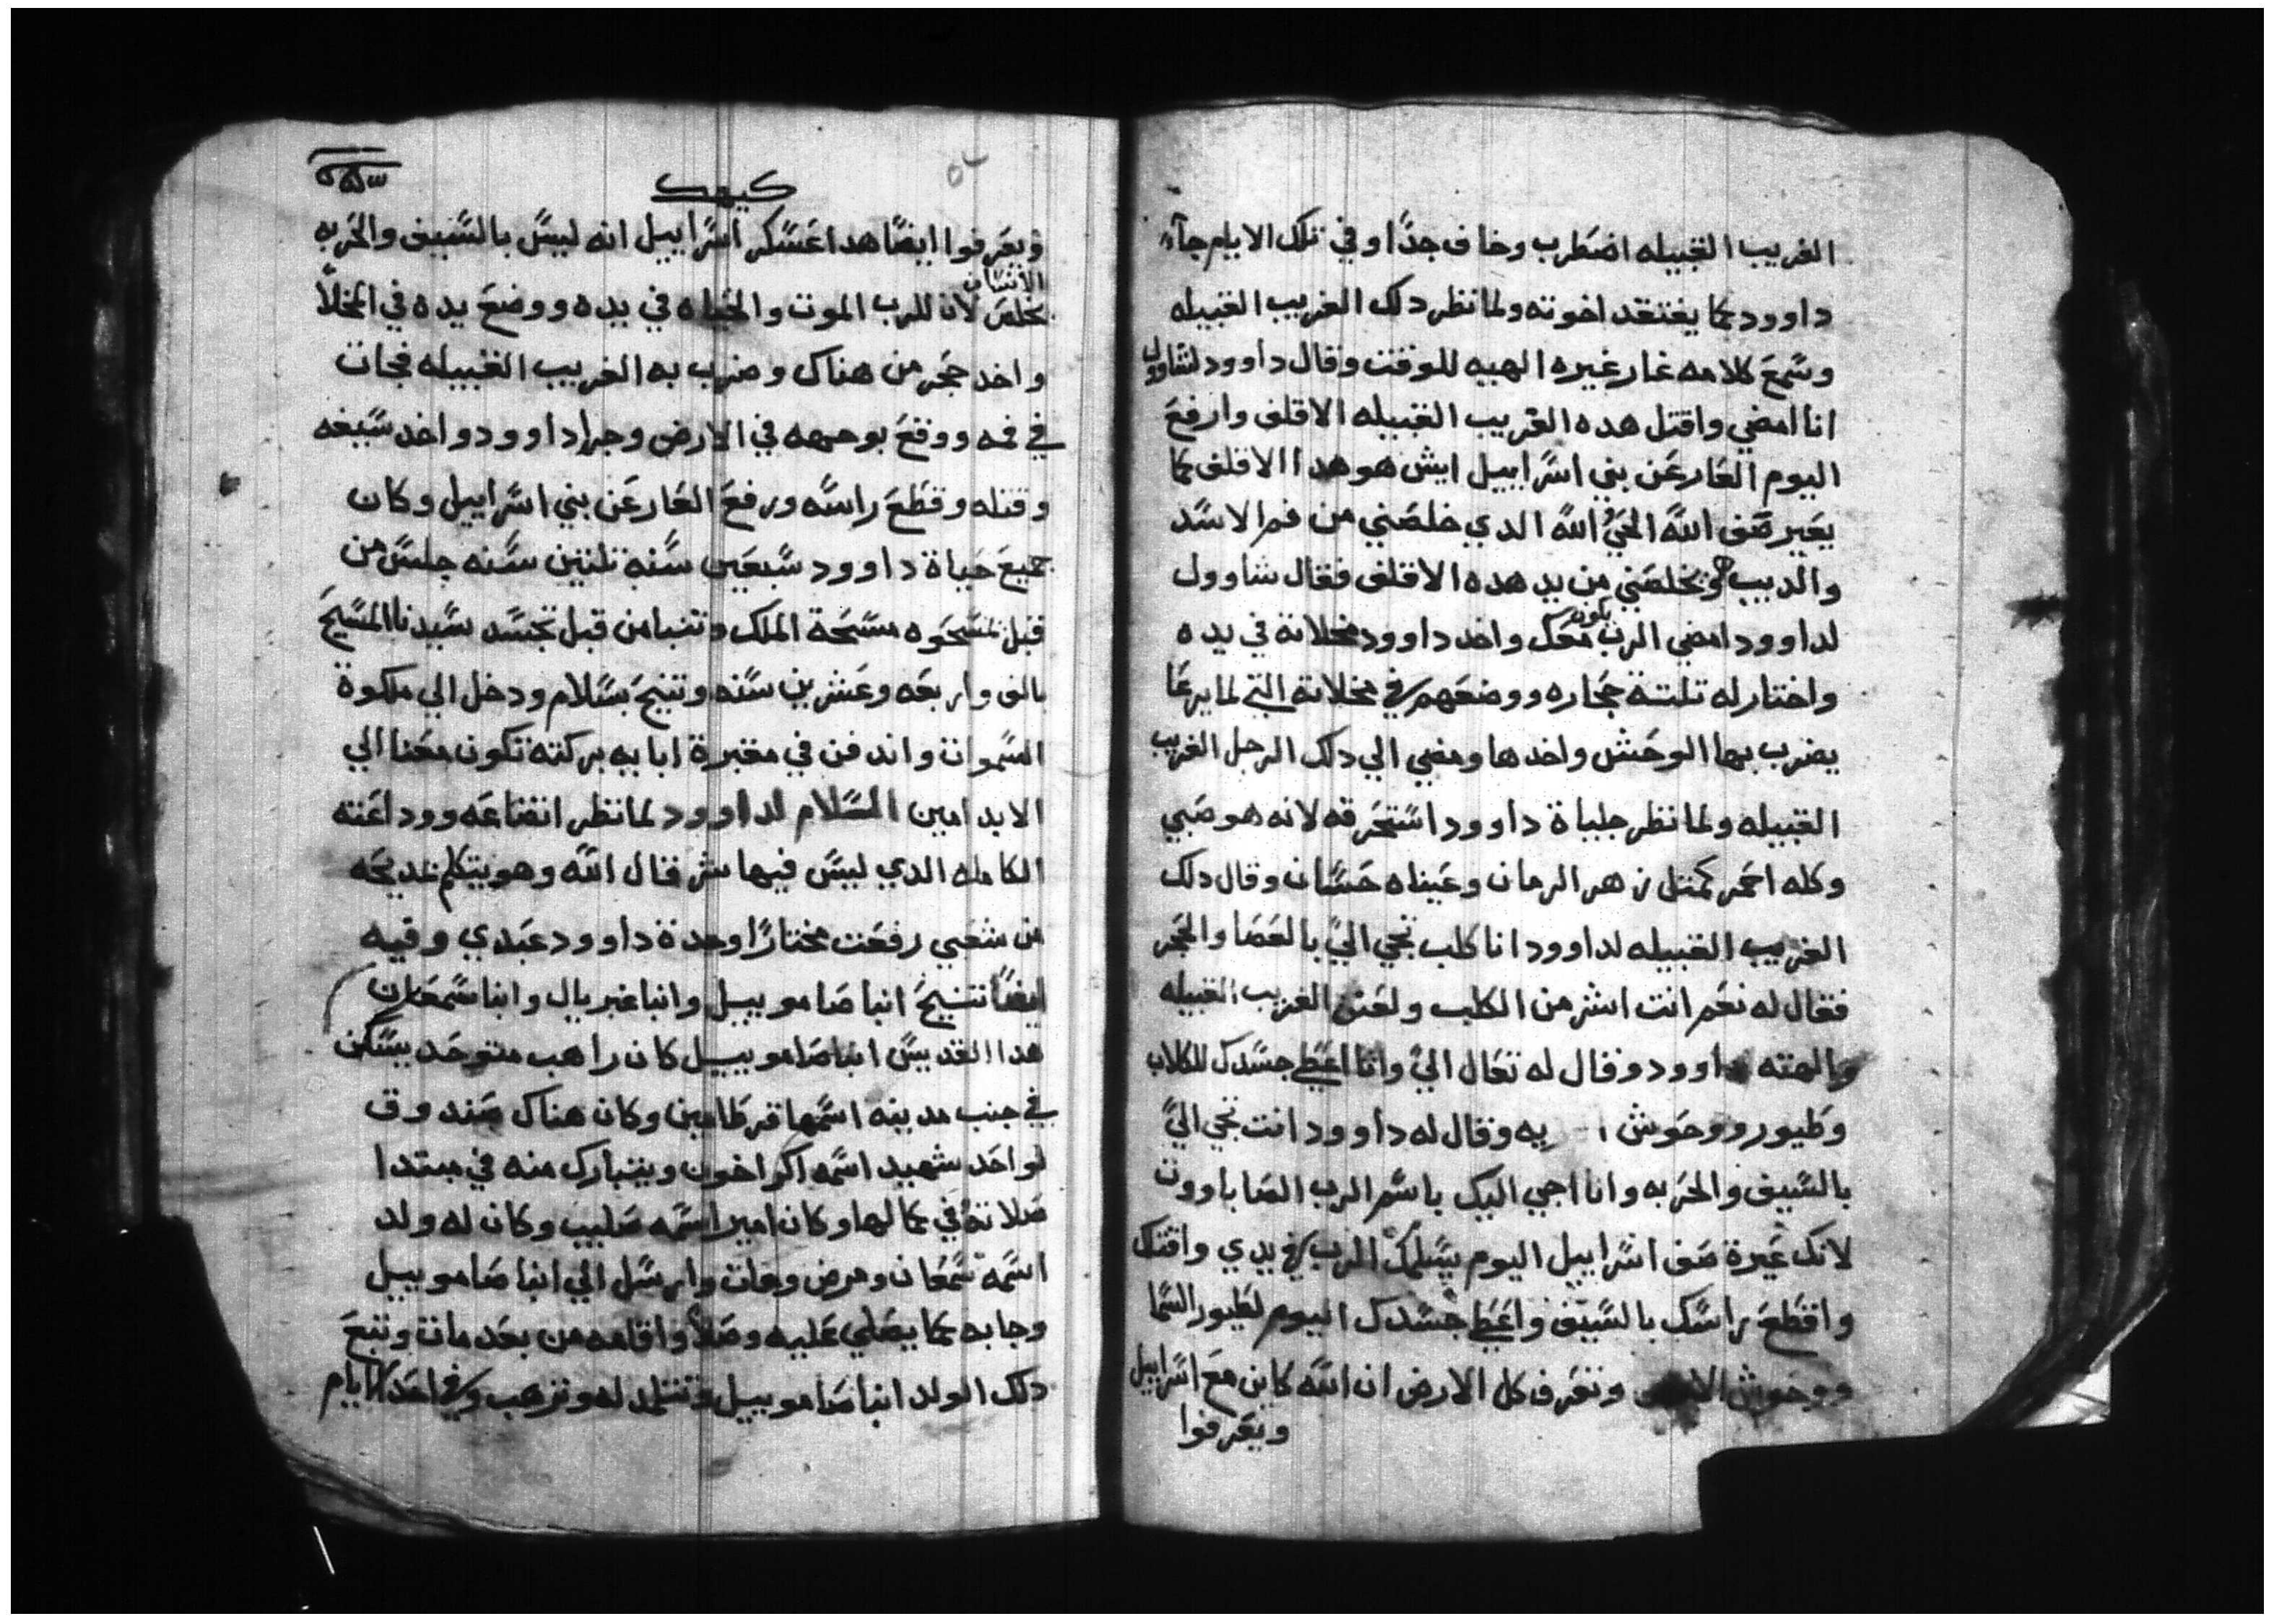 الغريب القبيله اضطرب وخاف جدًا وفي تلك الايام جآء
داوود كما يفتقد اخوته ولما نظر دلك الغريب القبيله
وسمع كلامه غار غيره الهيه للوقت وقال داوود لشاوول
انا امضي واقتل هده الغريب القبيله الاقلف وارفع
اليوم العار عن بني اسراييل ايش هو هدا الاقلف كما
يعير صف الله الحي الله الدي خلصني من فم الاسد
والديب هو يخلصني من يد هده الاقلف فقال شاوول
لداوود امضي الرب يكون معك واخد داوود مخلاته في يده
واختار له تلتة حجاره ووضعهم في مخلاته التي لما يرعا
يضرب بها الوحش واخدها ومضي الي دلك الرجل الغريب
القبيله ولما نظر جلياة داوود استحرقه لانه هو صبي
وكله احمر كمتل زهر الرمان وعيناه حسان وقال دلك
الغريب القبيله لداوود انا كلب تجي اليّ بالعصا والحجر
فقال له نعم انت اشر من الكلب ولعن الغريب القبيله
والهته داوود وقال له تعال اليّ وانا اعطي جسدك للكلاب
وطيور ووحوش يه وقال له داوود انت تجي اليّ
بالسيف والحربه وانا اجي اليك باسم الرب الصاباووت
لانك عيرة صف اسراييل اليوم يسلمك الرب في يدي واقتلك
واقطع راسك بالسيف واعطي جسدك اليوم لطيور السما
ووحوش الارض وتعرف كل الارض ان الله كاين مع اسراييل
ويعرفوا
كيهك
ويعرفوا ايضًا هدا عسكر اسراييل انه ليس بالسيف والحربه
الانسان
يخلص لان للرب الموت والحياه في يده ووضع يده في المخلاً
واخد حجر من هناك وضرب به الغريب القبيله فجات
في فمه ووقع بوجهه في الارض وجرا داوود واخد سيفه
وقتله وقطع راسه ورفع العار عن بني اسراييل وكان
جميع حياة داوود سبعين سنه تلتين سنه جلس من
قبل تمسحوه مسحة الملك وتنبا من قبل تجسد سيدنا المسيح
بالف واربعه وعشرين سنه وتنيح بسلام ودخل الي ملكوة
السموات واندفن في مقبرة ابايه بركته تكون معنا الي
الابد امين السلام لداوود لما نظر اتضاعه ووداعته
الكامله الدي ليس فيها شر قال الله وهو يتكلم بمديحه
من شعبي رفعت مختارًا وجدة داوود عبدي وفيه
ايضًا تنيح انبا صامويييل وانبا غبريال وانبا سمعان
هدا القديس انبا صامويييل كان راهب متوحد يسكن
في جنب مدينه اسمها قرطامين وكان هناك صندوق
لواحد شهيد اسمه اكراخون ويتبارك منه في مبتدا
صلاته وفي كمالها وكان امير اسمه صليب وكان له ولد
اسمه سمعان ومرض ومات وارسل الي انبا صامويييل
وجابه كما يصلي عليه وصلاً واقامه من بعد مات وتبع
دلك الولد انبا صامويييل وتتلمد له وترهب وفي احد الايام